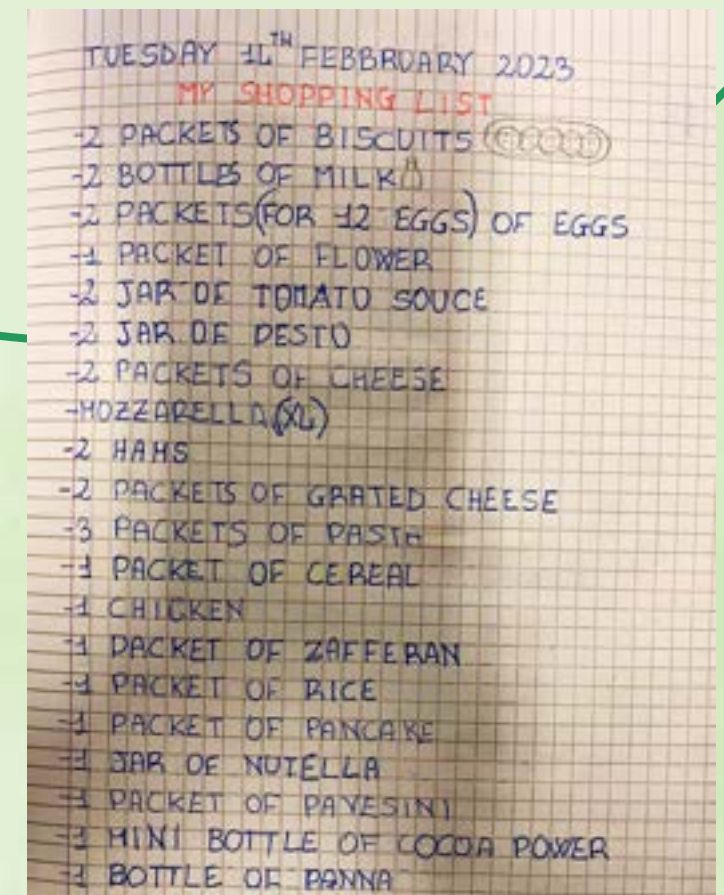 TUESDAY 14TH FEBBRUARY 2023
MY SHOPPING LIST
-2 PACKETS OF BISCUITS
-2 BOTTLES OF MILK
-2 PACKETS (FOR 12 EGGS) OF EGGS
-1 PACKET OF FLOWER
-2 JAR OF TOMATO SOUCE
-2 JAR OF PESTO
-2 PACKETS OF CHEESE
-MOZZARELLA (XL)
-2 HAMS
-2 PACKETS OF GRATED CHEESE
-3 PACKETS OF PASTA
-1 PACKET OF CEREAL
-1 CHICKEN
-1 PACKET OF ZAFFERAN
-1 PACKET OF RICE
-1 PACKET OF PANCAKE
-1 JAR OF NUTELLA
-1 PACKET OF PAVESINI
-1 MINI BOTTLE OF COCOA POWER
-1 BOTTLE OF PANNA